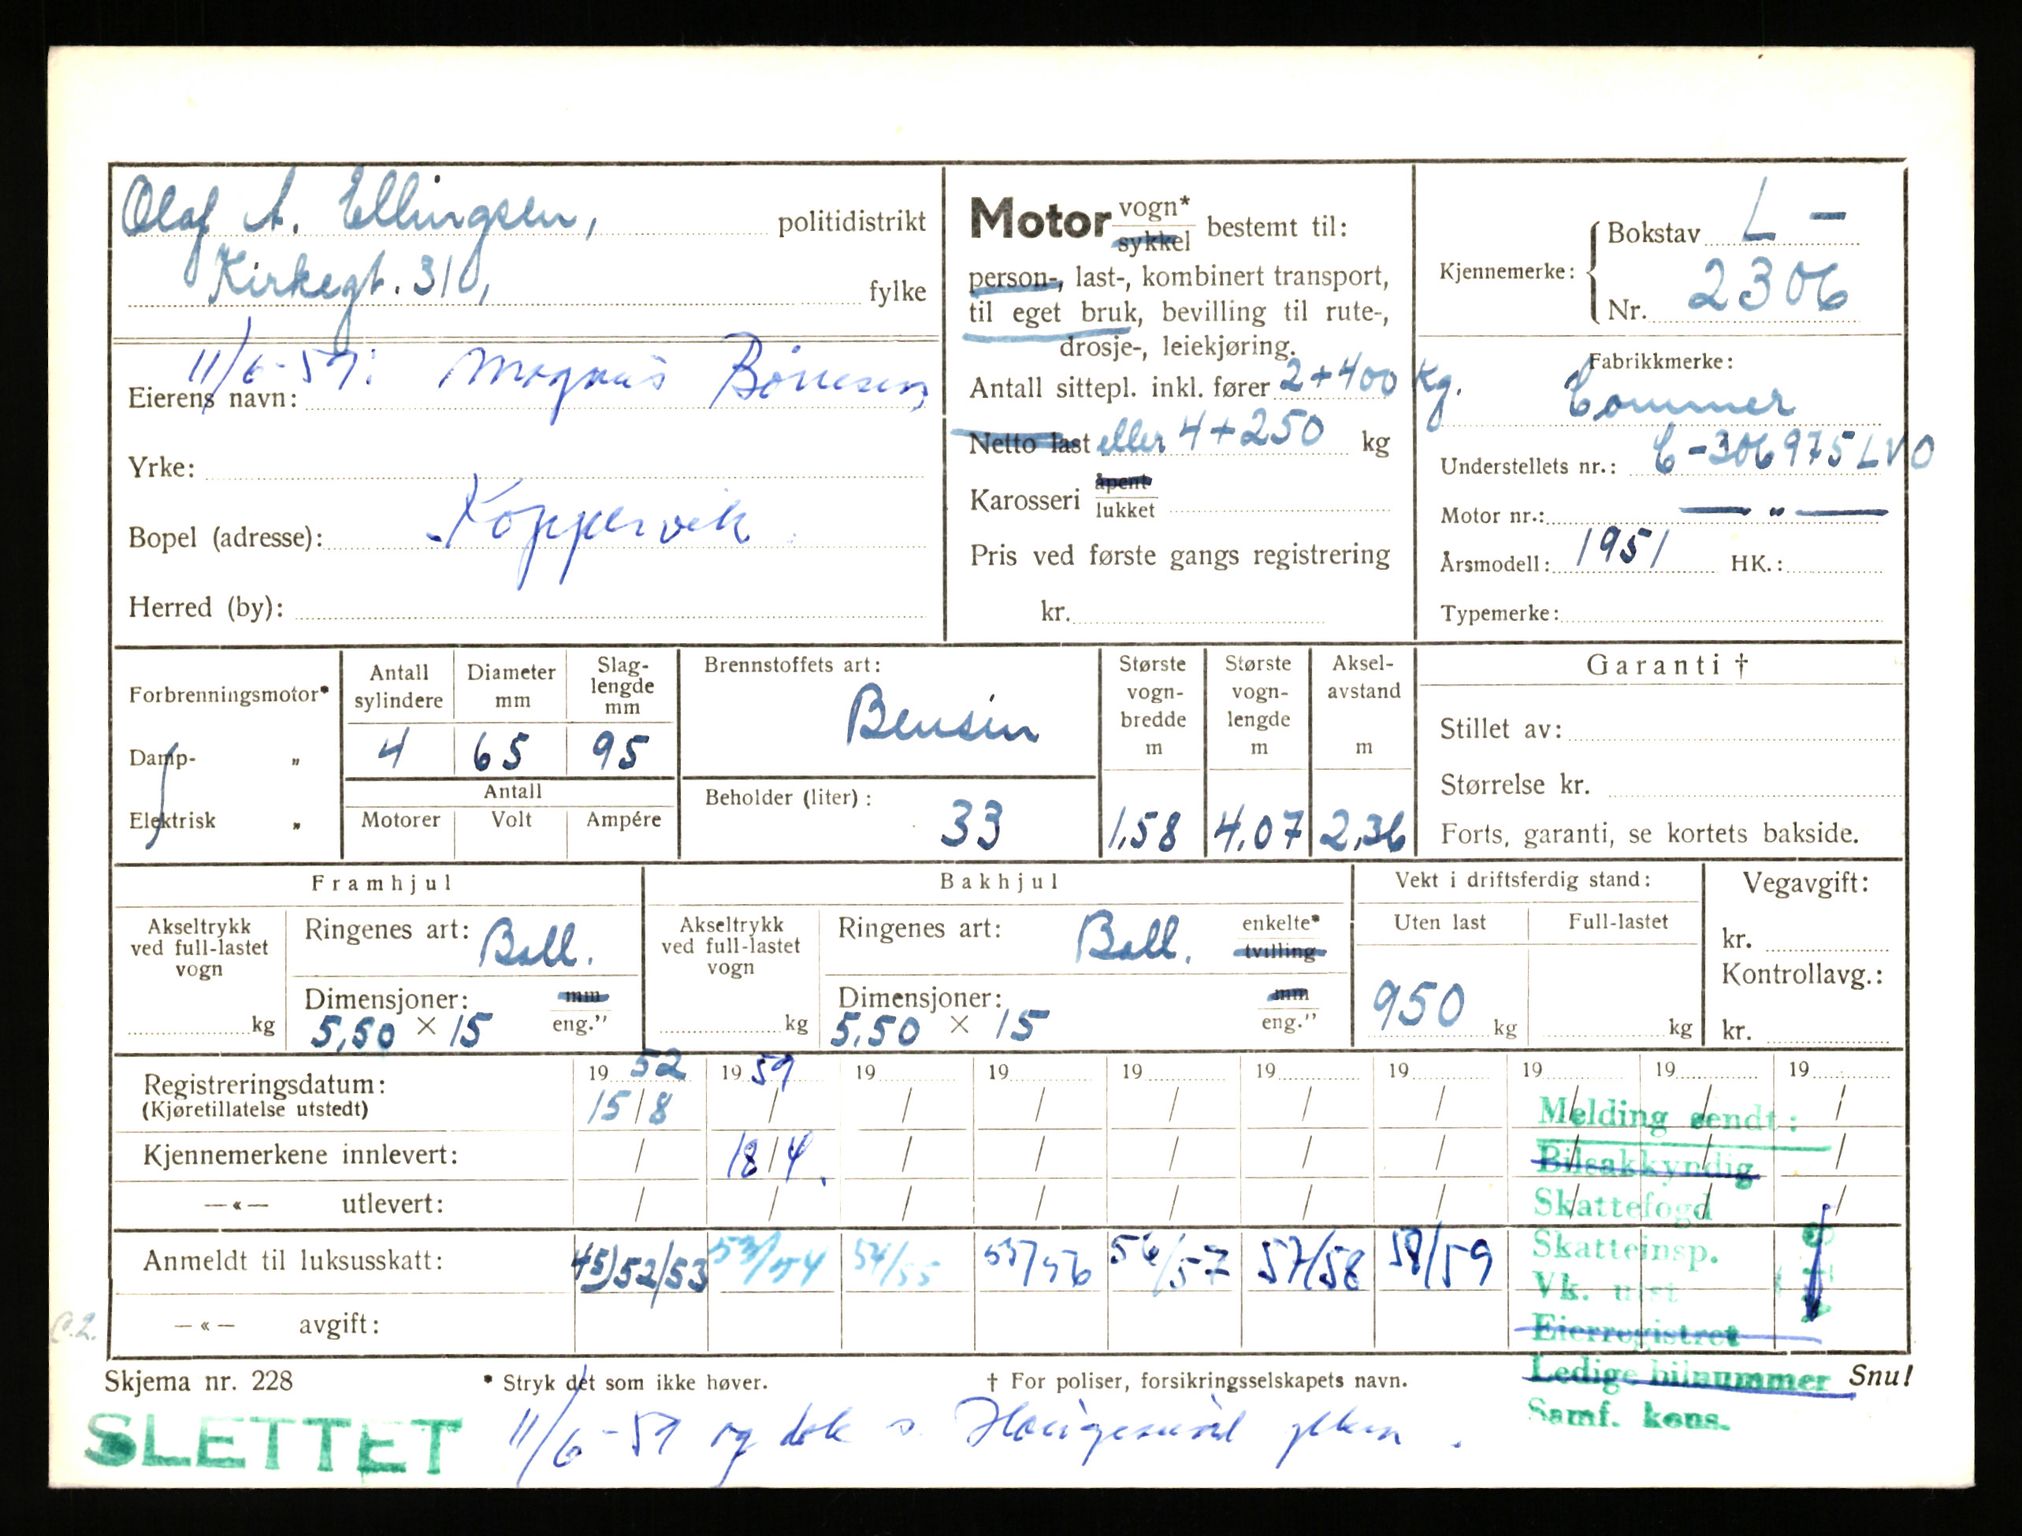 Olaf A. Ellingsen, politidistrikt
Kirkegt. 31, fylke
11/6-59: Magnus
Eierens navn:
Yrke:
Bopel (adresse): Koppervik
Herred (by):
Motor vogn*
sykkel bestemt til:
person-, last-, kombinert transport,
til eget bruk, bevilling til rute-,
drosje-, leiekjøring.
Antall sittepl. inkl. fører 2+400 kg.
Netto last eller 4+250 kg
Karosseri åpent
lukket
Pris ved første gangs registrering
kr.
Kjennemerke: Bokstav L -
Nr. 2306
Fabrikkmerke:
Commer
Understellets nr.: C-306975LVO
Motor nr.: — " —
Årsmodell: 1951 HK.:
Typemerke:
Forbrenningsmotor*
Damp- „
Elektrisk „
Antall sylindere
Diameter mm
Slag-lengde mm
4 65 95
Antall
Motorer Volt Ampére
Brennstoffets art:
Bensin
Beholder (liter): 33
Største vogn-bredde m
1,58
Største vogn-lengde m
4,07
Aksel-avstand m
2,36
Garanti †
Stillet av:
Størrelse kr.
Forts, garanti, se kortets bakside.
Framhjul
Akseltrykk ved full-lastet vogn
kg
Ringenes art: Ball.
Dimensjoner: mm
5,50 × 15 eng."
Bakhjul
Akseltrykk ved full-lastet vogn
kg
Ringenes art: Ball. enkelte*
tvilling
Dimensjoner: mm
5.50 × 15 eng."
Vekt i driftsferdig stand:
Uten last Full-lastet
950 kg kg
Vegavgift:
kr.
Kontrollavg.:
kr.
Registreringsdatum: 19 52 19 59 19 19 19 19 19 19 19 19
(Kjøretillatelse utstedt) 15/8 / / / / / / / / /
Kjennemerkene innlevert: / 18/4. / / / / / / / /
—«— utlevert: / / / / / / / / / /
Anmeldt til luksusskatt: 52/53 53/54 54/55 55/56 56/57 57/58 58/59
—«— avgift:
C.2.
Melding sendt:
Bilsakkyndig
Skattefogd
Skatteinsp.
Vk. utst
Eierregistret
Ledige bilnummer
Samf. kons.
Skjema nr. 228 * Stryk det som ikke høver. † For poliser, forsikringsselskapets navn. Snu!
SLETTET
11/6-59 og dok s. Haugesund